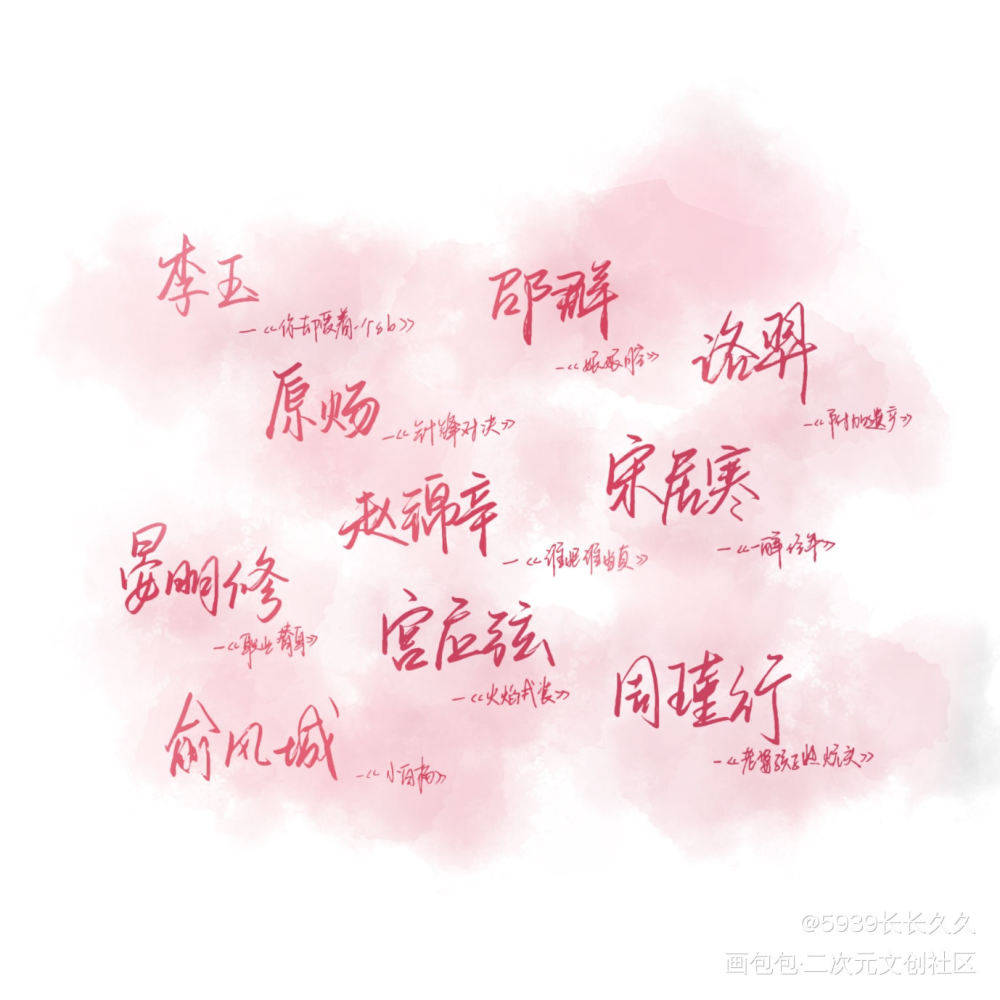 李玉
—《你却爱着一个sb》
邵群
—《娘娘腔》
洛羿
原炀
—《针锋对决》
宋居寒
—《一醉经年》
赵锦辛
—《谁把谁当真》
晏明修
—《职业替身》
宫应弦
—《火焰戎装》
周瑾行
—《老婆孩子热炕头》
俞风城
—《小白杨》
@5939长长久久
画包包·二次元文创社区